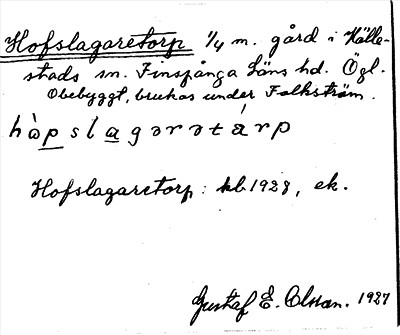 Hofslagaretorp 1/4 m. gård i Hälle-
stads sn. Finspånga Läns hd. Ögl.
Obebyggt, brukas under Falkström.
hòpslagərətárp
Hofslagaretorp: kb 1928, ek.
Gustaf E. Olsson. 1927